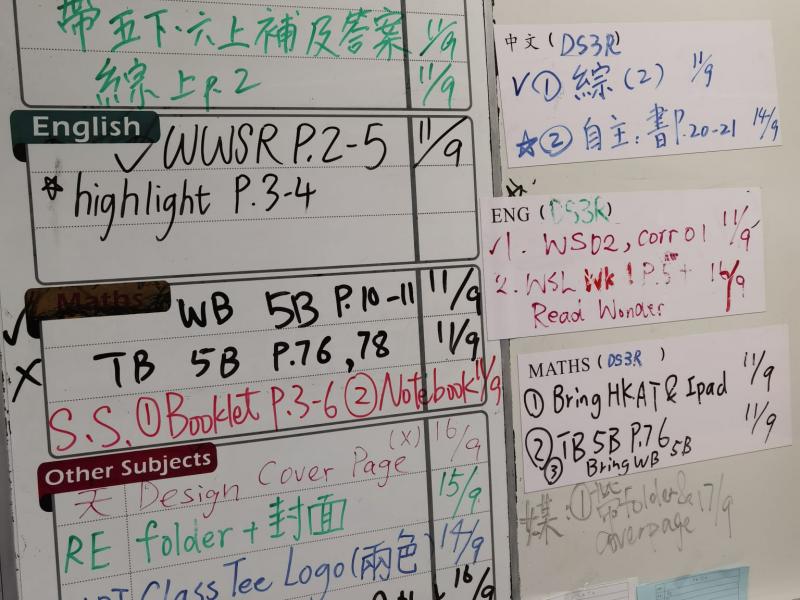 帶五下.六上補及答案 11/9
綜上P.2 11/9
English
✓WWSR P.2-5 11/9
☆highlight P.3-4
Maths
✓ WB 5B P.10-11 11/9
X TB 5B P.76,78 11/9
S.S. ①Booklet P.3-6 ②Notebook 11/9
Other Subjects
天 Design Cover Page (X) 16/9
RE folder + 封面 15/9
Class Tee Logo(兩色) 14/9
16/9
中文 (DS3R)
✓① 綜(2) 11/9
☆② 自主:書P.20-21 14/9
ENG (DS3R)
✓1. WS02, corr 01 11/9
2. WSL Wk 1 P.5 + 16/9
Read Wonder
MATHS (DS3R)
① Bring HKAT & Ipad 11/9
② TB 5B P.76 11/9
③ Bring WB 5B
媒:① folder & 17/9
coverpage